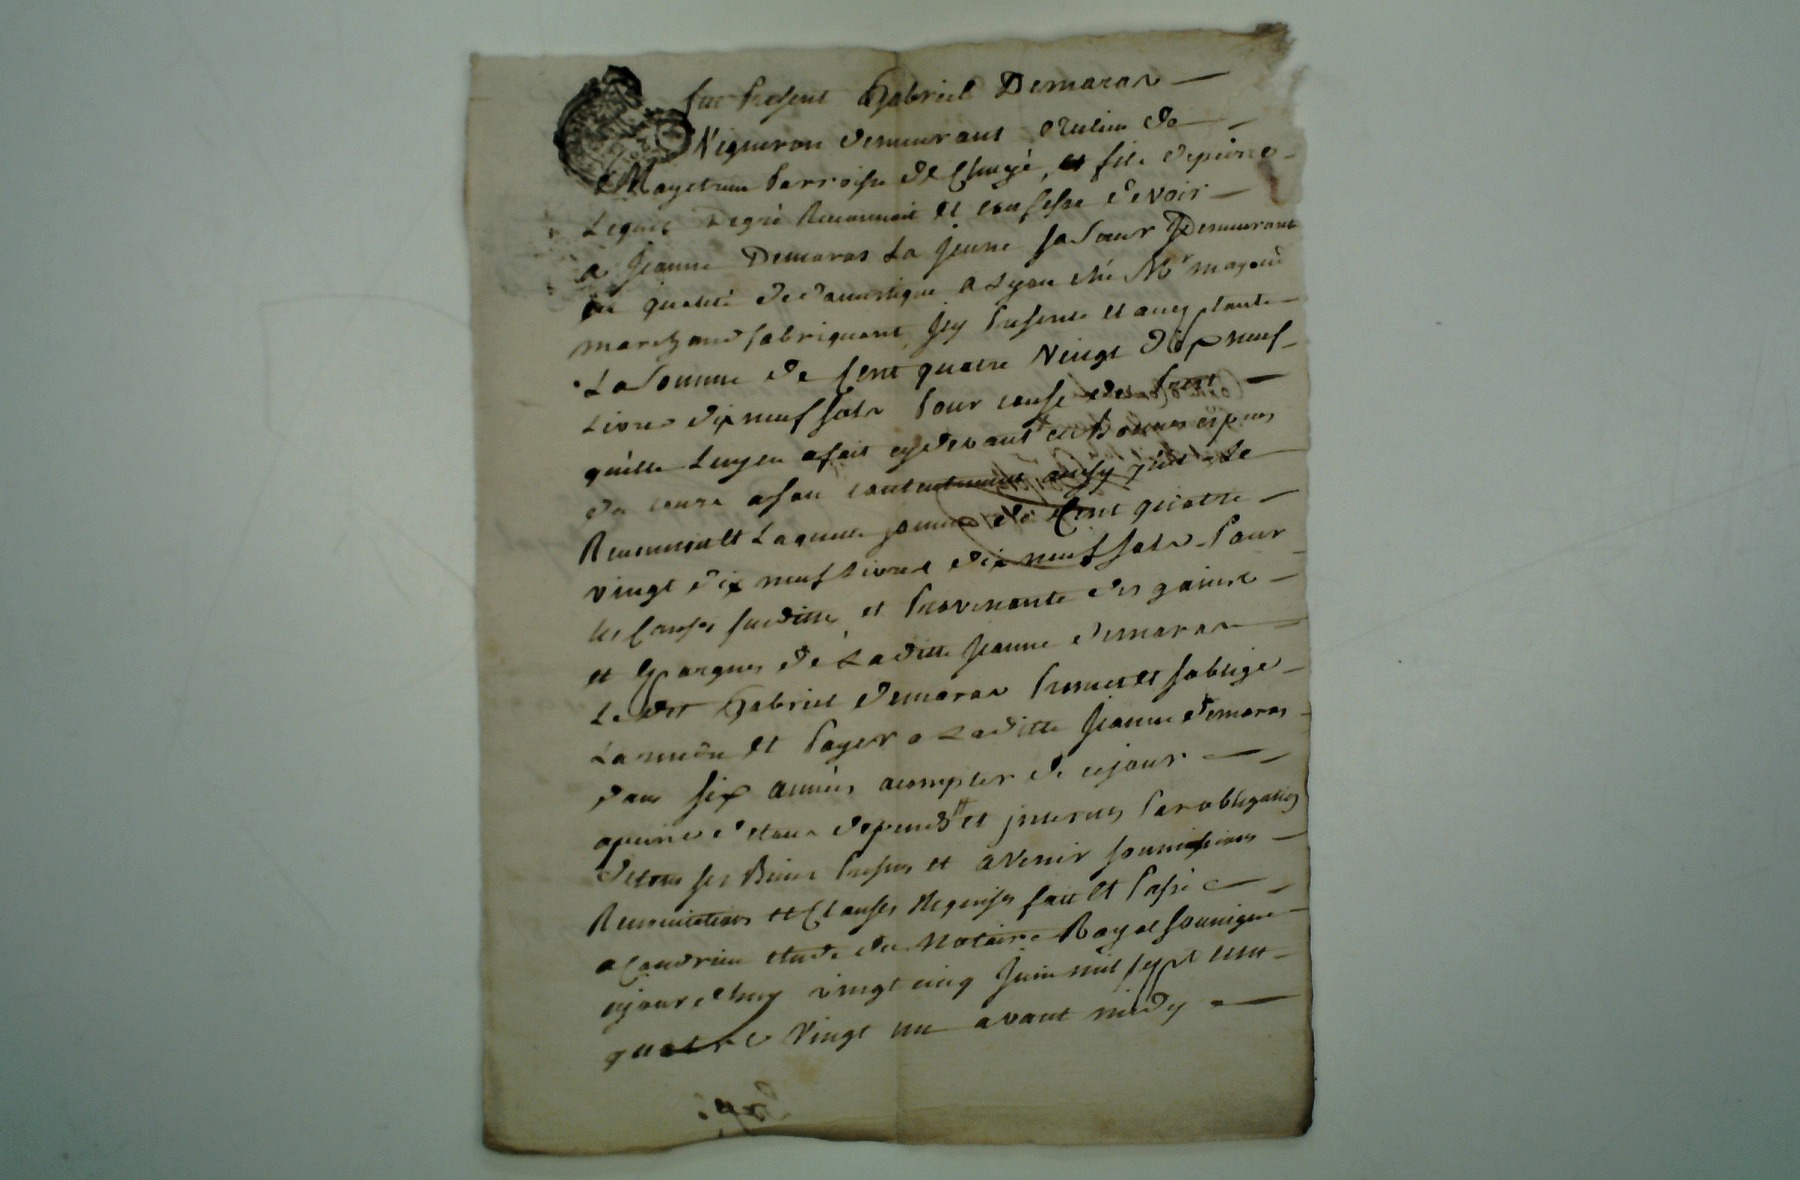 fut présent Gabriel Demaras
Vigneron demeurant au lieu de
Parroisse de Chuyé, et fils depierre
Lequel Degré Reconnoit et confesse devoir
a Jeanne Demaras La jeune sa soeur Demeurant
en qualité de domestique a Lyon ché Mr
marchand fabriquant, icy présente et acceptante
La somme de Cent quatre Vingt dix neuf
Livres dix neuf sols Pour cause de prest
quelle Luy en a fait cydevant en Bonnes espèces
du cours a son contentement ainsy qu'il Le
Reconnoit Laquelle somme de Cent quatre
vingt dix neuf Livres dix neuf sols Pour
les Causes susditte, et Provenante des gaines
et Epargnes de Laditte Jeanne demaras
Le dit Gabriel demaras Promet et soblige
La rendre et Payer a Laditte Jeanne demaras
dans six années acompter de cejour
apeine de tous depends et interets Par obligation
detous ses Biens présens et avenir soumissions
Renonciations et Clauses Requises fait et Passé
a Condrieu étude du Notaire Royal soussigné
cejourdhuy vingt cinq Juin mil sept cent
quatre Vingt un avant midy